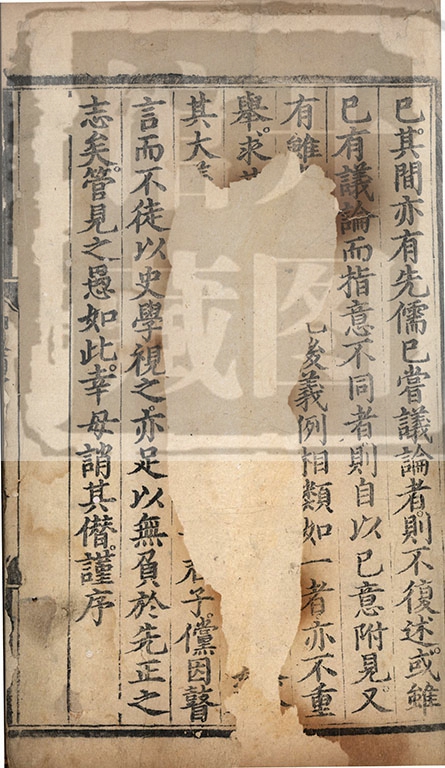 已其間亦有先儒已嘗議論者則不復述或雖
已有議論而指意不同者則自以已意附見又
有雖 義例相類如一者亦不重
舉求
其大 君子儻因瞽
言而不徒以史學視之亦足以無負於先正之
志矣管見之愚如此幸毋誚其僭謹序